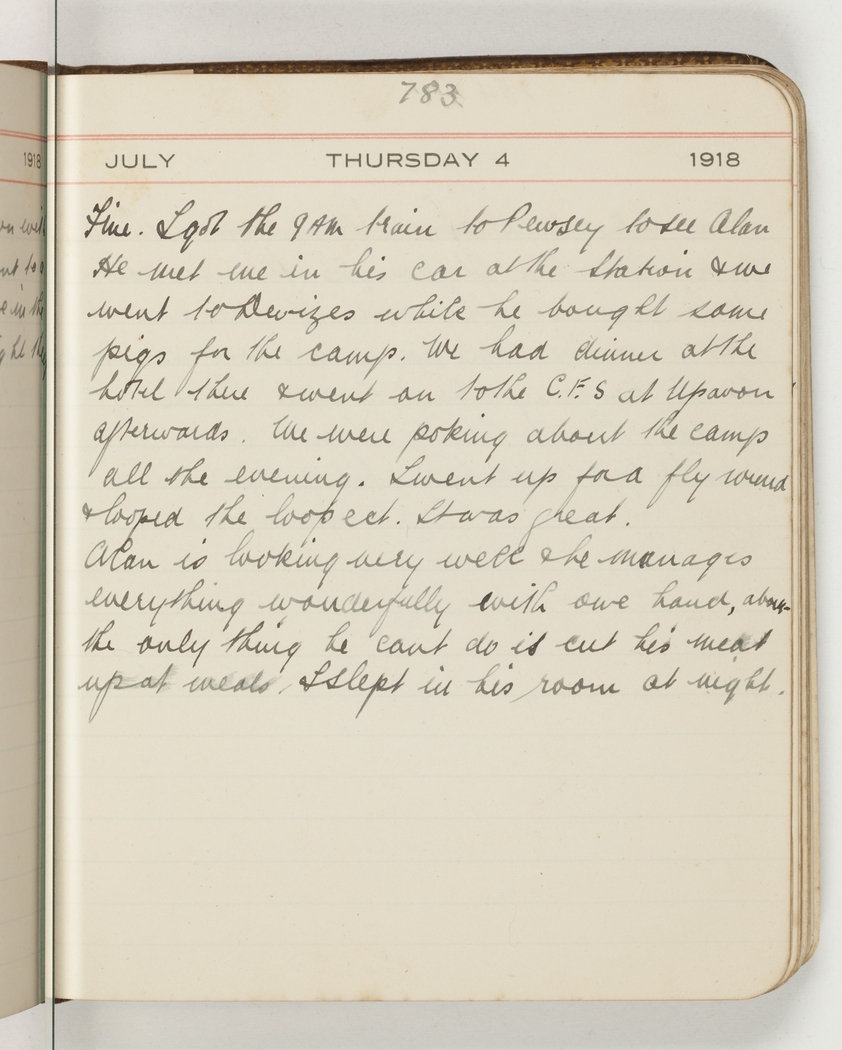 783
1918
JULY THURSDAY 4 1918
Fine. I got the 9 AM train to Pewsey to see Alan
He met me in his car at the Station & we
went to Devizes while he bought some
pigs for the camp. We had dinner at the
hotel there & went on to the C.F.S at Upavon
afterwards. We were poking about the camp
all the evening. I went up for a fly
& looped the loop ect. It was great.
Alan is looking very well & he manages
everything wonderfully with one hand, about
the only thing he cant do is cut his meat
up at meals. I slept in his room at night.